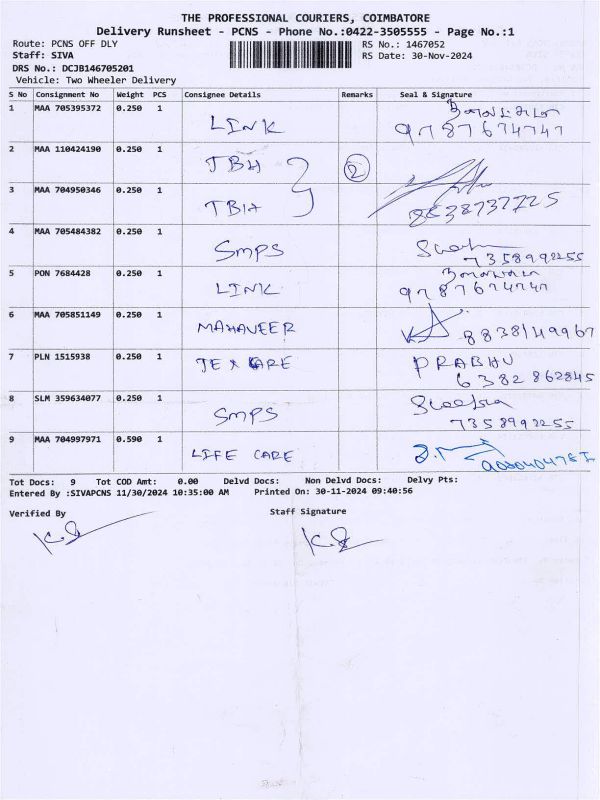 THE PROFESSIONAL COURIERS, COIMBATORE
Delivery Runsheet - PCNS - Phone No.:0422-3505555 - Page No.:1
Route: PCNS OFF DLY RS No.: 1467052
Staff: SIVA RS Date: 30-Nov-2024
DRS No.: DCJB146705201
Vehicle: Two Wheeler Delivery
S No Consignment No Weight PCS Consignee Details Remarks Seal & Signature
1 MAA 705395372 0.250 1 LINK
9787674747
2 MAA 110424190 0.250 1 TBH 2
3 MAA 704950346 0.250 1 TBH 8638737725
4 MAA 705484382 0.250 1 SMPS
7358992255
5 PON 7684428 0.250 1 LINK
9787674747
6 MAA 705851149 0.250 1 MAHAVEER 8838149967
7 PLN 1515938 0.250 1 TEX CARE PRABHU
6382862845
8 SLM 359634077 0.250 1 SMPS
7358992255
9 MAA 704997971 0.590 1 LIFE CARE
Tot Docs: 9 Tot COD Amt: 0.00 Delvd Docs: Non Delvd Docs: Delvy Pts:
Entered By :SIVAPCNS 11/30/2024 10:35:00 AM Printed On: 30-11-2024 09:40:56
Verified By Staff Signature